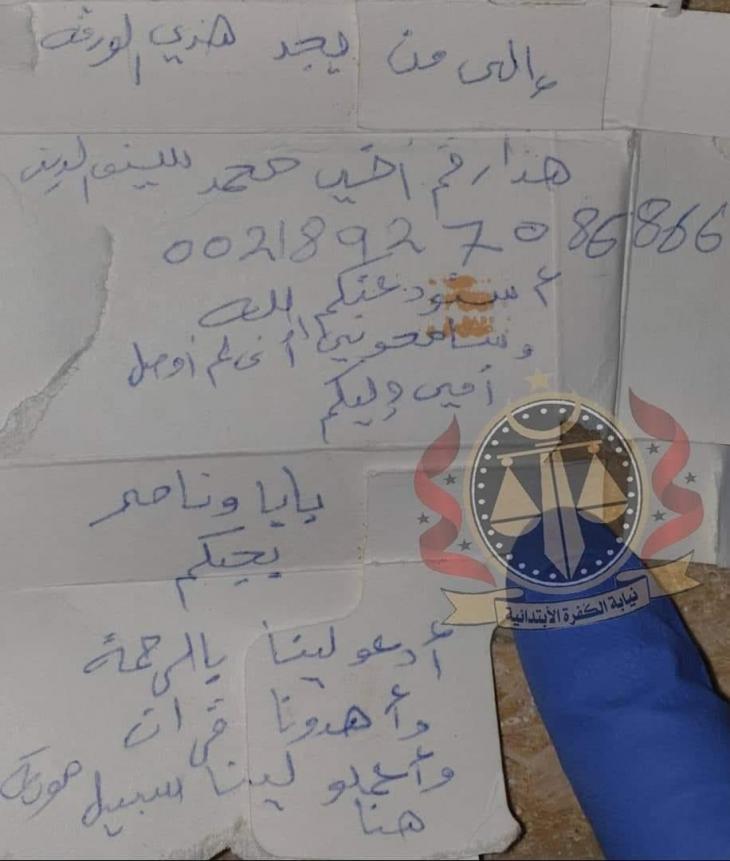 والى من يجد هذي الورقه
هذا رقم أخي محمد سيف الدين
00218927086866
أستودعتكم الله
وسامحوني أني لم أوصل
أمي وليكم
بابا وناصر
يحبكم
أدعو لينا بالرحمة
وأهدونا قرأن
وأعملو لينا سبيل
هنا
نيابة الكفرة الأبتدائية